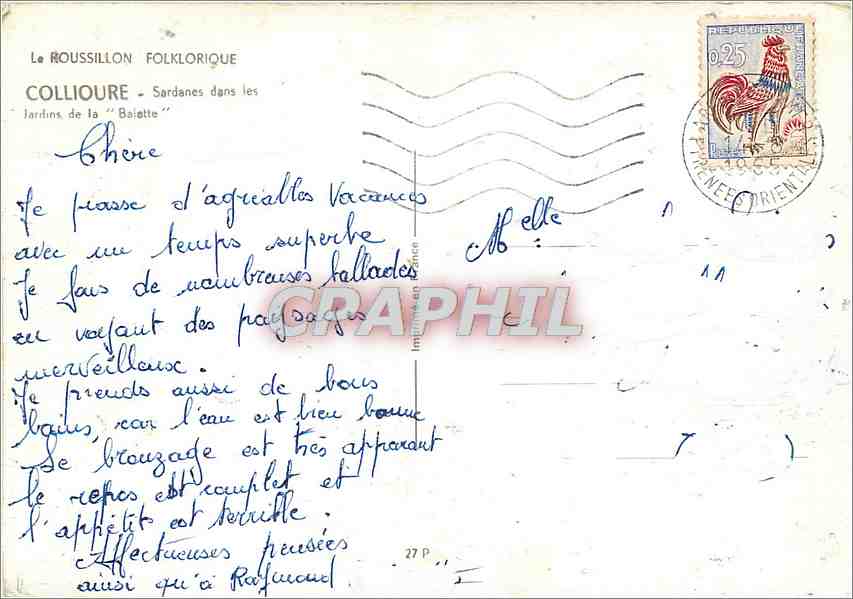 Le ROUSSILLON FOLKLORIQUE
COLLIOURE - Sardanes dans les
Jardins de la "Balette"
REPUBLIQUE FRANCAISE
0,25
Postes
1965
PYRENEES ORIENTALES
Chère
Je passe d'agréables vacances
avec un temps superbe
Je fais de nombreuses ballades
en voyant des paysages
merveilleux.
Je prends aussi de bons
bains, car l'eau est bien bonne
Le bronzage est très apparant
le repos est complet et
l'appétit est terrible.
Affectueuses pensées
ainsi qu'à Raymond.
Melle
Imprimé en France
27 P
CRAPHIL